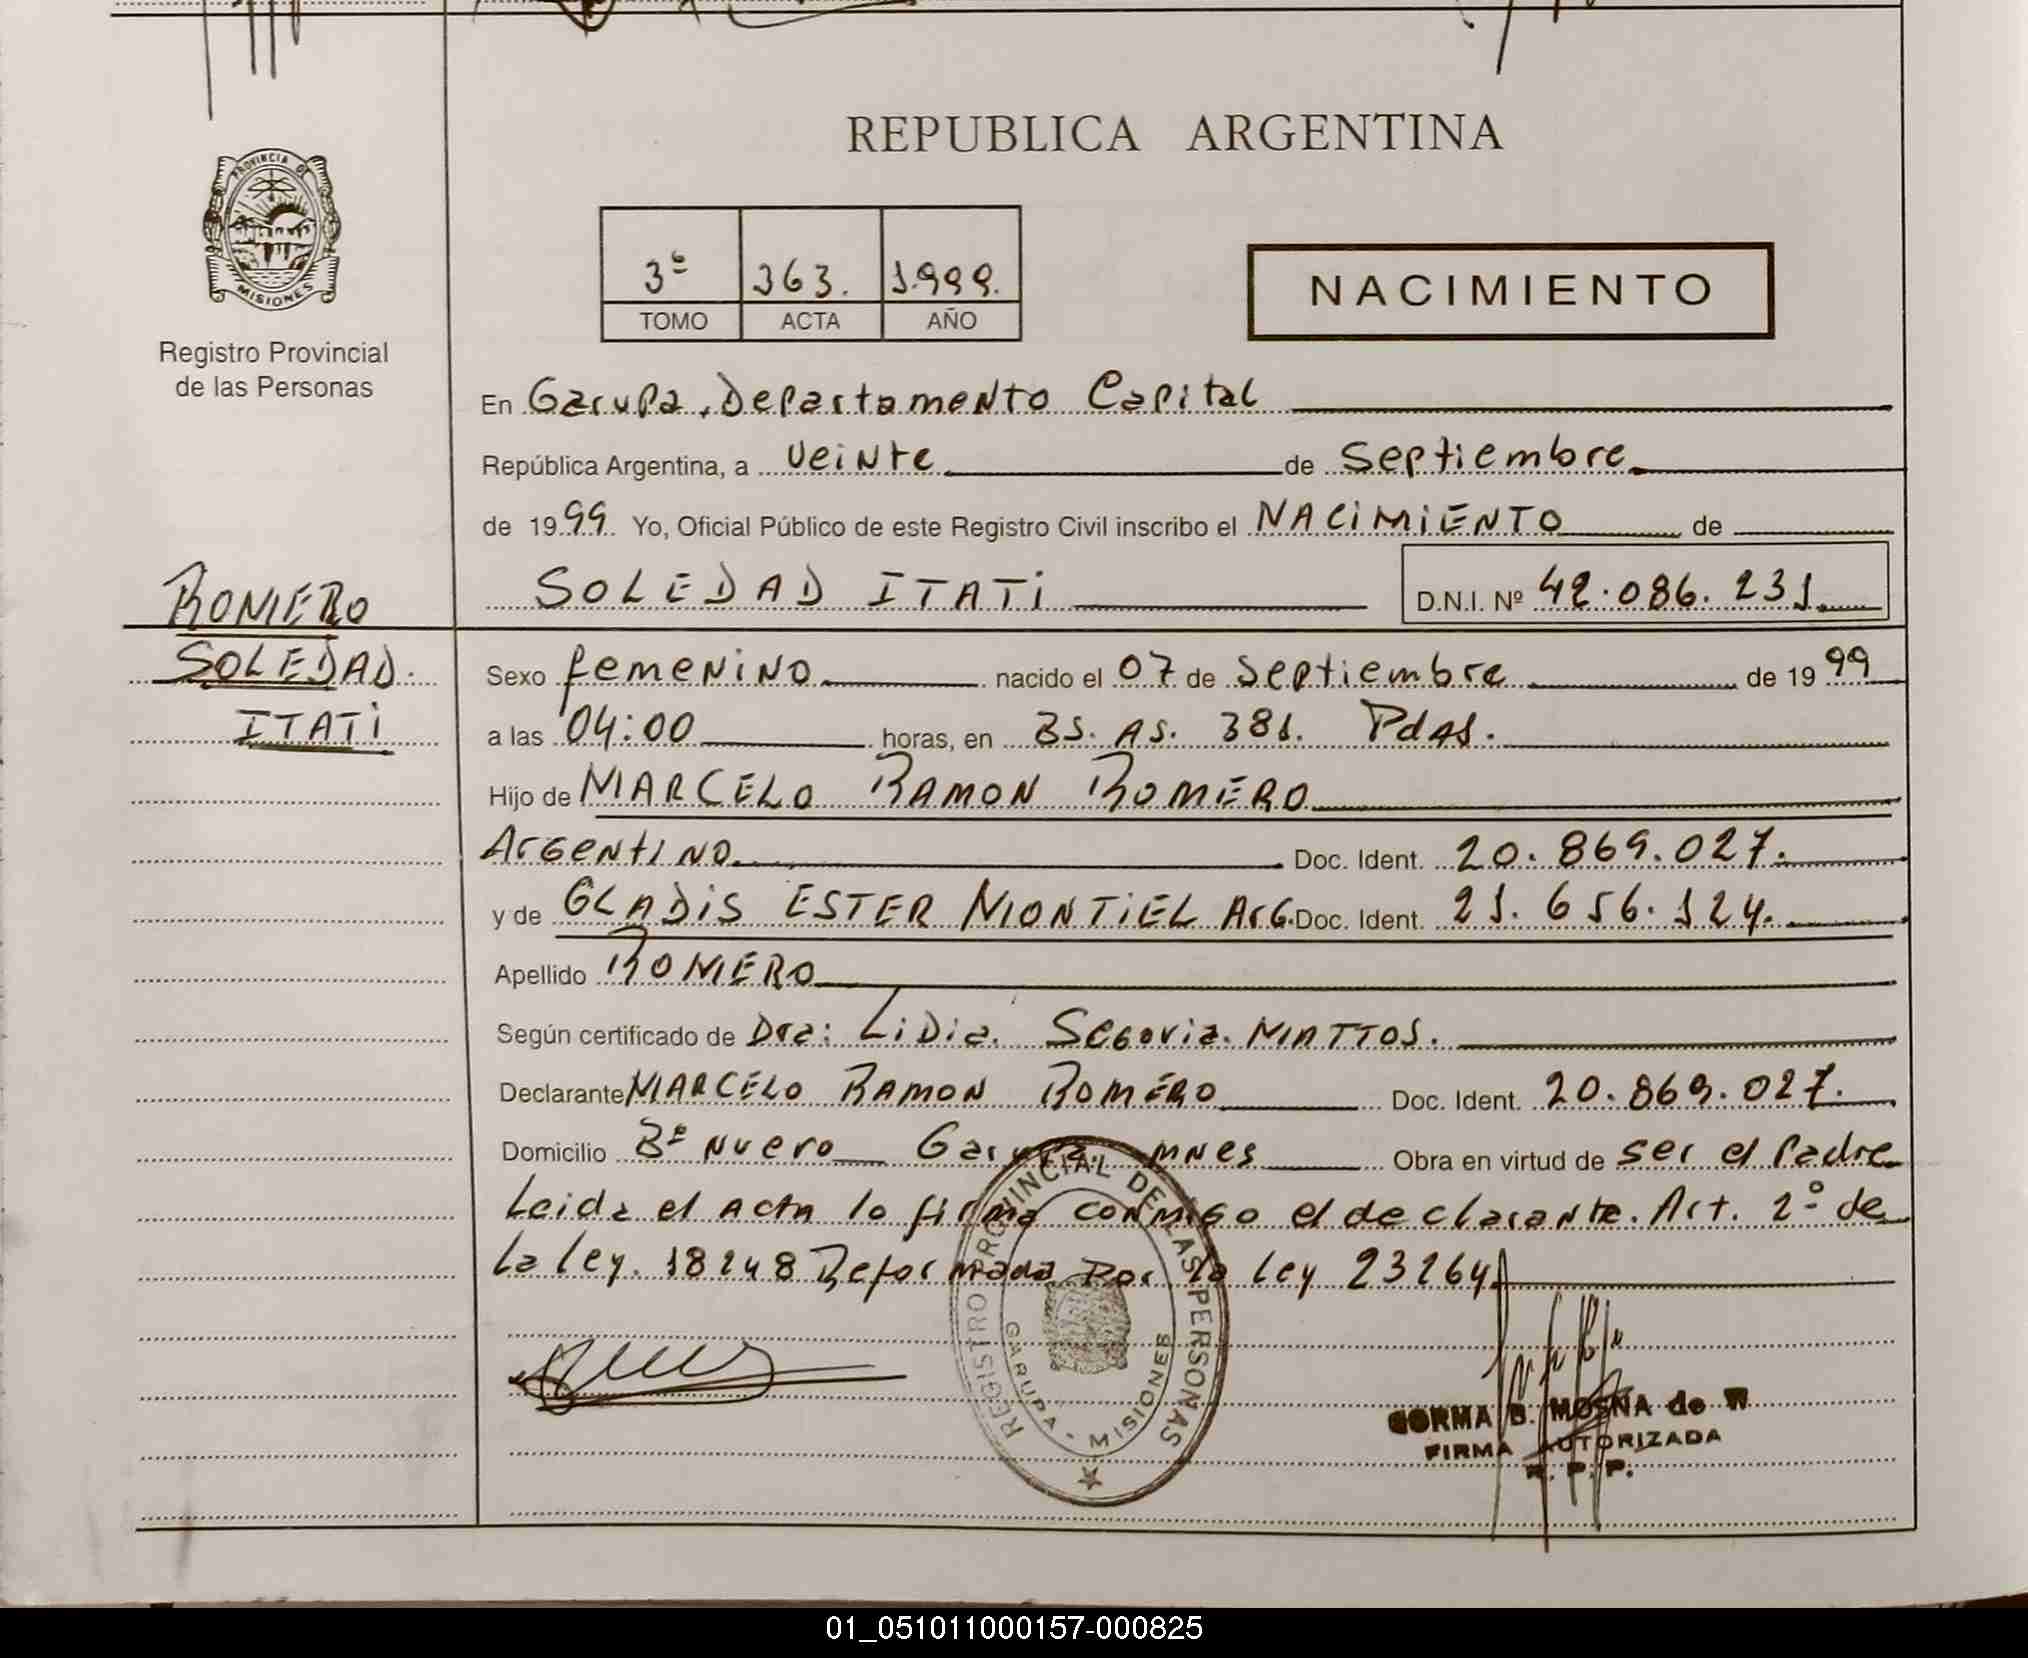 REPUBLICA ARGENTINA
PROVINCIA DE
MISIONES
Registro Provincial
de las Personas
3º 363. 1.999.
TOMO ACTA AÑO
NACIMIENTO
En Garupa. Departamento Capital
República Argentina, a veinte de septiembre
de 1999 Yo, Oficial Público de este Registro Civil inscribo el NACIMIENTO de
SOLEDAD ITATI D.N.I. Nº 42.086.231
ROMERO
SOLEDAD.
ITATI
Sexo femenino nacido el 07 de septiembre de 1999
a las 04:00 horas, en Bs. As. 381. Pdas.
Hijo de MARCELO RAMON ROMERO
Argentino Doc. Ident. 20.869.027.
y de GLADIS ESTER MONTIEL Arg. Doc. Ident. 21.656.124.
Apellido ROMERO
Según certificado de Dra: Lidia. Segovia. MATTOS.
Declarante MARCELO RAMON ROMERO Doc. Ident. 20.869.027.
Domicilio Bº Nuevo Garupa. mnes Obra en virtud de ser el Padre
Leida el Acta lo firma conmigo el declarante. Art. 2º de
la ley. 18248 Reformada Por la ley 23264
REGISTRO PROVINCIAL DE LAS PERSONAS
GARUPA - MISIONES
NORMA B. MOSNA de W
FIRMA AUTORIZADA
R. P. P.
01_051011000157-000825